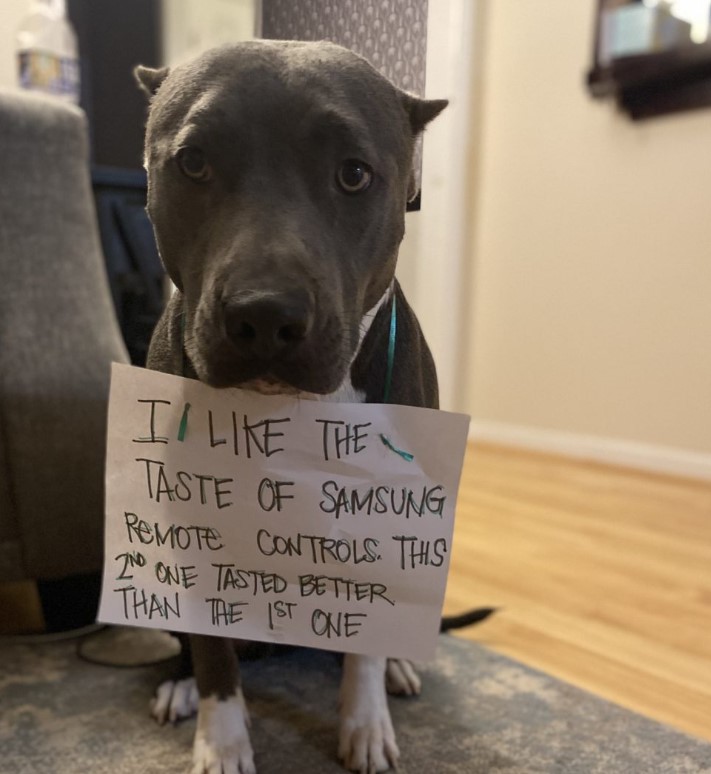 I LIKE THE
TASTE OF SAMSUNG
REMOTE CONTROLS. THIS
2ND ONE TASTED BETTER
THAN THE 1ST ONE